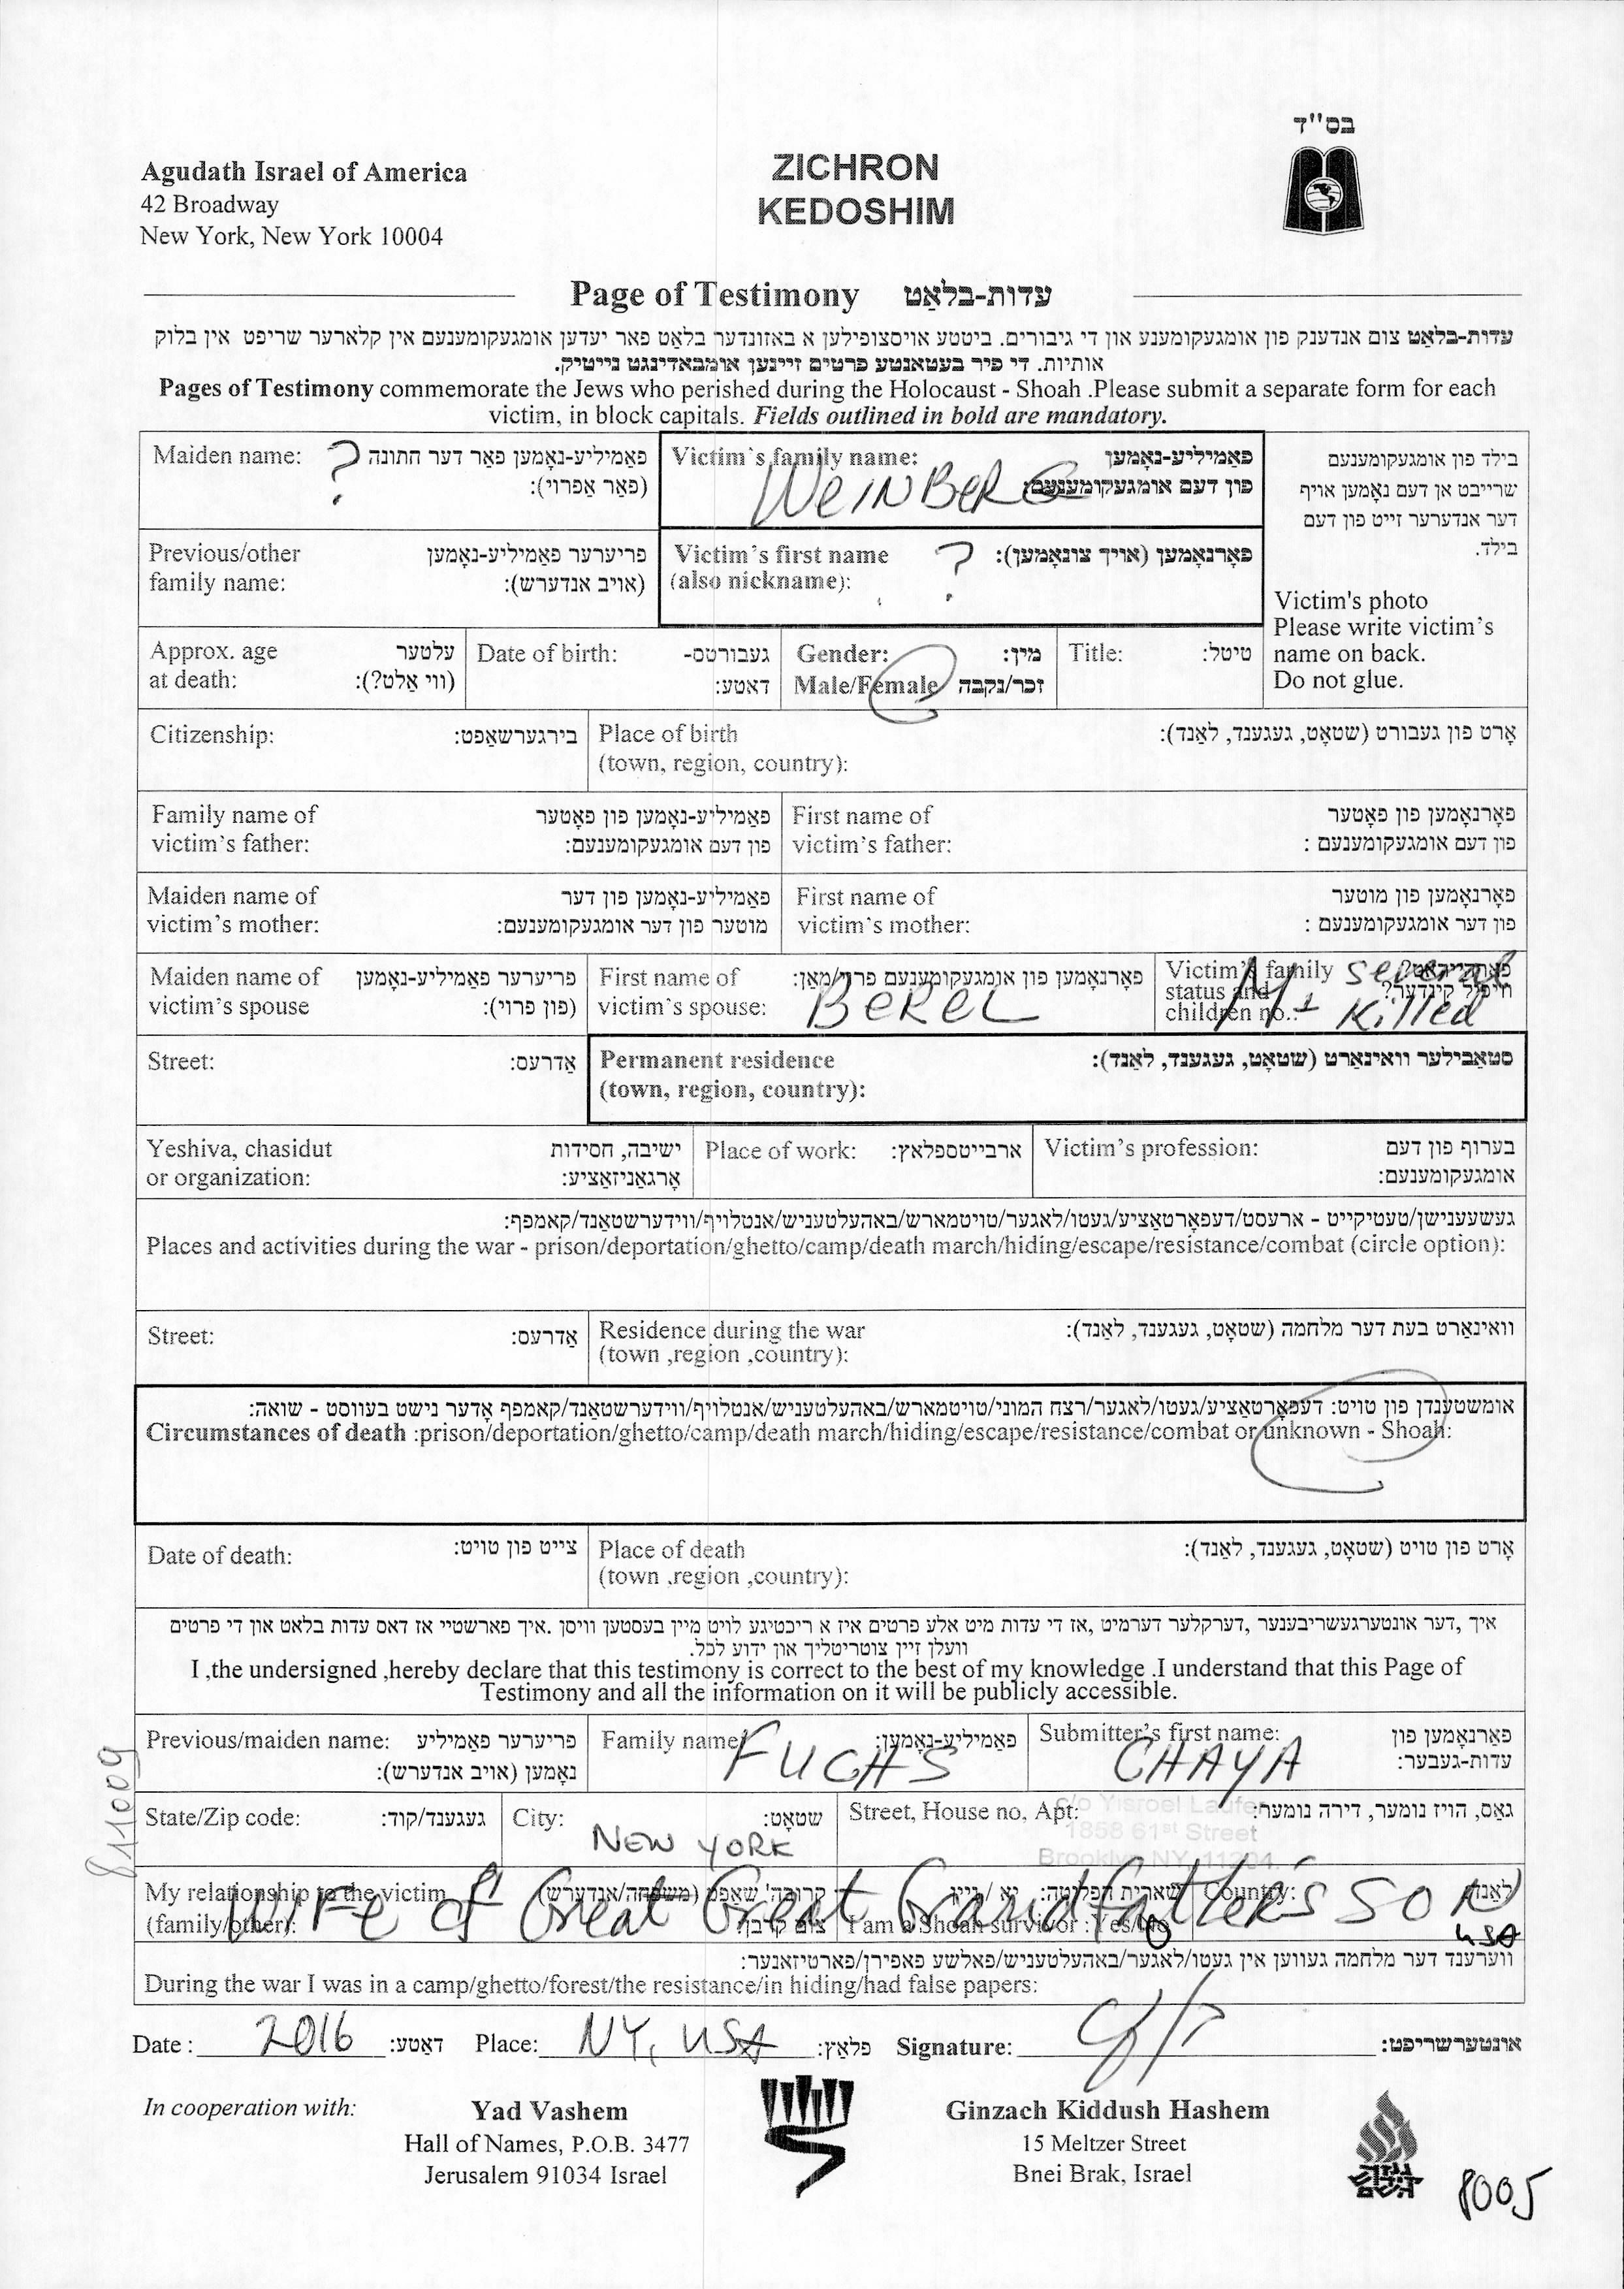 בס"ד
Agudath Israel of America
42 Broadway
New York, New York 10004
ZICHRON
KEDOSHIM
Page of Testimony עדות-בלאַט
עדות-בלאַט צום אנדענק פון אומגעקומענע און די גיבורים. ביטטע אויסצופילען א באזונדער בלאט פאר יעדען אומגעקומענעם אין קלארער שריפט אין בלוק
אותיות. די פיר בעטאנטע פרטים זיינען אומבאדינגט נייטיק.
Pages of Testimony commemorate the Jews who perished during the Holocaust - Shoah .Please submit a separate form for each
victim, in block capitals. Fields outlined in bold are mandatory.
Maiden name: ? פאַמיליע-נאָמען פאר דער חתונה
(פאר אַפרוי):
Victim's family name: פאַמיליע-נאָמען
פון דעם אומגעקומענעם:
WEINBERG
בילד פון אומגעקומענעם
שרייבט אן דעם נאָמען אויף
דער אנדערער זייט פון דעם
בילד.
Victim's photo
Please write victim's
name on back.
Do not glue.
Previous/other פריערער פאַמיליע-נאָמען
family name: (אויב אנדערש):
Victim's first name ? פאָרנאָמען (אויך צונאָמען):
(also nickname):
Approx. age עלטער
at death: (ווי אַלט?):
Date of birth: געבורטס-
דאטע:
Gender: מין:
Male/Female זכר/נקבה
Title: טיטל:
Citizenship: בירגערשאַפט:
Place of birth אָרט פון געבורט (שטאָט, געגענד, לאַנד):
(town, region, country):
Family name of פאַמיליע-נאָמען פון פאָטער
victim's father: פון דעם אומגעקומענעם:
First name of פאָרנאָמען פון פאָטער
victim's father: פון דעם אומגעקומענעם :
Maiden name of פאַמיליע-נאָמען פון דער
victim's mother: מוטער פון דער אומגעקומענעם:
First name of פאָרנאָמען פון מוטער
victim's mother: פון דער אומגעקומענעם :
Maiden name of פריערער פאַמיליע-נאָמען
victim's spouse (פון פרוי):
First name of פאָרנאָמען פון אומגעקומענעם פרוי/מאַן:
victim's spouse: BEREL
Victim's family
status and
children no.:
M + several
killed
Street: אַדרעס:
Permanent residence סטאַבילער וואוינאָרט (שטאָט, געגענד, לאַנד):
(town, region, country):
Yeshiva, chasidut ישיבה, חסידות
or organization: אָרגאַניזאַציע:
Place of work: ארבייטספלאץ:
Victim's profession: בערוף פון דעם
אומגעקומענעם:
געשעענישן/טעטיקייט - ארעסט/דעפאָרטאַציע/געטו/לאגער/טויטמארש/באהעלטעניש/אנטלויף/ווידערשטאַנד/קאמפף:
Places and activities during the war - prison/deportation/ghetto/camp/death march/hiding/escape/resistance/combat (circle option):
Street: אַדרעס:
Residence during the war וואוינאָרט בעת דער מלחמה (שטאָט, געגענד, לאַנד):
(town ,region ,country):
אומשטענדן פון טויט: דעפאָרטאַציע/געטו/לאגער/רצח המוני/טויטמארש/באהעלטעניש/אנטלויף/ווידערשטאַנד/קאמפף אָדער נישט בעוווסט - שואה:
Circumstances of death :prison/deportation/ghetto/camp/death march/hiding/escape/resistance/combat or unknown - Shoah:
Date of death: צייט פון טויט:
Place of death אָרט פון טויט (שטאָט, געגענד, לאַנד):
(town ,region ,country):
איך ,דער אונטערגעשריבענער ,דערקלער דערמיט ,אז די עדות מיט אלע פרטים איז א ריכטיגע לויט מיין בעסטען וויסן .איך פארשטיי אז דאס עדות בלאט און די פרטים
וועלן זיין צוטריטליך און ידוע לכל.
I ,the undersigned ,hereby declare that this testimony is correct to the best of my knowledge .I understand that this Page of
Testimony and all the information on it will be publicly accessible.
Previous/maiden name: פריערער פאַמיליע
נאָמען (אויב אנדערש):
Family name: FUCHS פאַמיליע-נאָמען:
Submitter's first name: CHAYA פאָרנאָמען פון
עדות-געבער:
State/Zip code: געגענד/קוד:
City: NEW YORK שטאָט:
Street, House no, Apt: גאס, הויז נומער, דירה נומער:
c/o Yisroel Laufer
1858 61st Street
Brooklyn NY, 11204
My relationship to the victim
(family/other):
I am a Shoah survivor :Yes/No
Country: לאַנד:
Wife of Great Great Grandfather's SON
USA
ווערענד דער מלחמה געווען אין געטו/לאגער/באהעלטעניש/פאלשע פאפירן/פארטיזאנער:
During the war I was in a camp/ghetto/forest/the resistance/in hiding/had false papers:
Date : 2016 דאַטע: Place: NY, USA פלאַץ: Signature: אונטערשריפט:
In cooperation with:
Yad Vashem
Hall of Names, P.O.B. 3477
Jerusalem 91034 Israel
Ginzach Kiddush Hashem
15 Meltzer Street
Bnei Brak, Israel
גנזך
קידוש
השם
8005
811009